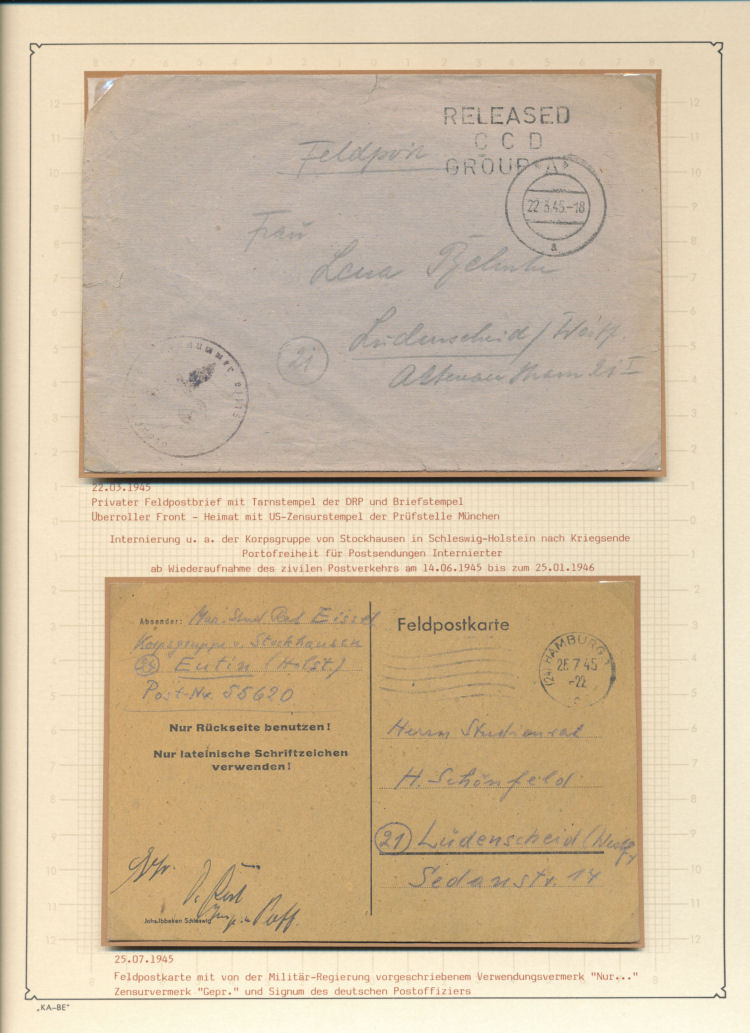 RELEASED
C C D
GROUP "A"
Feldpost
22.3.45.-18
a
Frau
Lena
Lüdenscheid / Westf.
21
22.03.1945
Privater Feldpostbrief mit Tarnstempel der DRP und Briefstempel
Überroller Front - Heimat mit US-Zensurstempel der Prüfstelle München
Internierung u. a. der Korpsgruppe von Stockhausen in Schleswig-Holstein nach Kriegsende
Portofreiheit für Postsendungen Internierter
ab Wiederaufnahme des zivilen Postverkehrs am 14.06.1945 bis zum 25.01.1946
Absender:
Korpsgruppe v. Stockhausen
Eutin (Holst.)
Post-Nr. 55620
Feldpostkarte
HAMBURG 1
25.7.45
-22
Nur Rückseite benutzen!
Nur lateinische Schriftzeichen
verwenden!
Herrn Studienrat
H. Schönfeld
21 Lüdenscheid (Westf.)
Sedanstr. 14
Gepr.
Johs.Ibbeken Schleswig
25.07.1945
Feldpostkarte mit von der Militär-Regierung vorgeschriebenem Verwendungsvermerk "Nur..."
Zensurvermerk "Gepr." und Signum des deutschen Postoffiziers
„KA-BE"